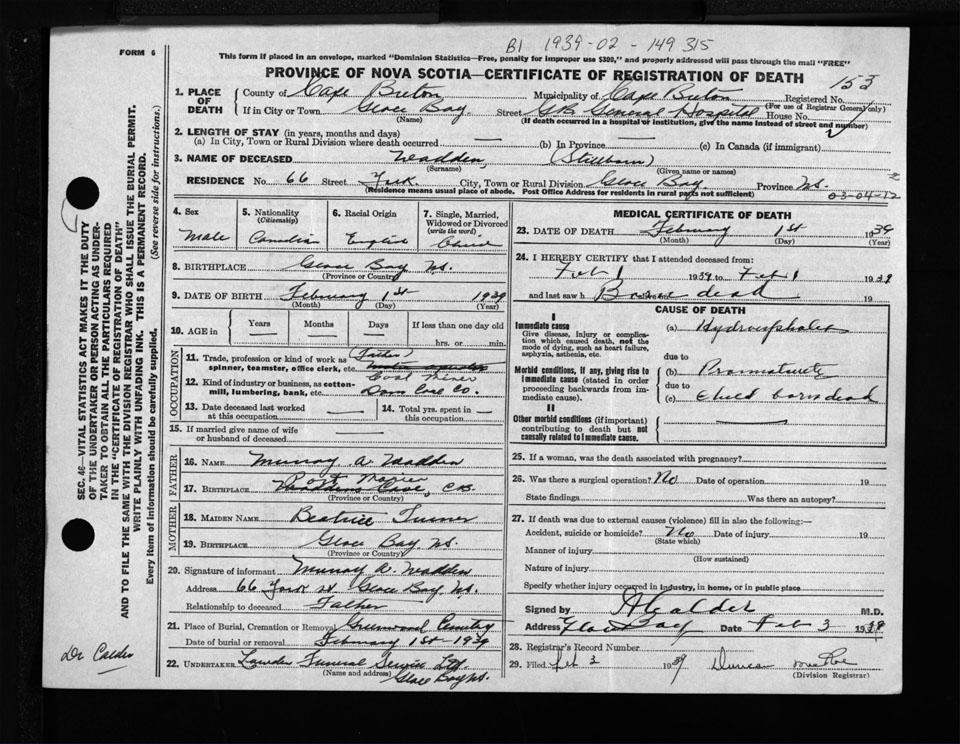 B1 1939-02-149315
FORM 6
This form if placed in an envelope, marked "Dominion Statistics—Free, penalty for improper use $300," and properly addressed will pass through the mail "FREE"
PROVINCE OF NOVA SCOTIA—CERTIFICATE OF REGISTRATION OF DEATH
153
1. PLACE OF DEATH
County of Cape Breton Municipality of Cape Breton Registered No.
(For use of Registrar General only)
If in City or Town Glace Bay Street G.B. General Hospital House No.
(Name) (If death occurred in a hospital or institution, give the name instead of street and number)
2. LENGTH OF STAY (in years, months and days)
(a) In City, Town or Rural Division where death occurred — (b) In Province — (c) In Canada (if immigrant)
3. NAME OF DECEASED Wadden, (Stillborn)
(Surname) (Given name or names)
RESIDENCE No. 66 Street York City, Town or Rural Division Glace Bay Province NS.
(Residence means usual place of abode. Post Office Address for residents in rural parts not sufficient)
03-04-12
4. Sex 5. Nationality (Citizenship) 6. Racial Origin 7. Single, Married, Widowed or Divorced (write the word)
Male Canadian English Child
8. BIRTHPLACE Glace Bay NS.
(Province or Country)
9. DATE OF BIRTH February 1st 1939
(Month) (Day) (Year)
10. AGE in Years Months Days If less than one day old
hrs. or min.
OCCUPATION
11. Trade, profession or kind of work as spinner, teamster, office clerk, etc. (Father)
Coal Miner
12. Kind of industry or business, as cotton-mill, lumbering, bank, etc. Dom Coal Co.
13. Date deceased last worked at this occupation — 14. Total yrs. spent in this occupation —
15. If married give name of wife or husband of deceased —
FATHER
16. NAME Murray A. Wadden
17. BIRTHPLACE Port Morien, C.B.
(Province or Country)
MOTHER
18. MAIDEN NAME Beatrice Turner
19. BIRTHPLACE Glace Bay NS.
(Province or Country)
20. Signature of informant Murray A. Wadden
Address 66 York St Glace Bay NS.
Relationship to deceased Father
21. Place of Burial, Cremation or Removal Greenwood Cemetery
Date of burial or removal February 1st 1939
22. UNDERTAKER Funeral Service Ltd.
(Name and address) Glace Bay NS.
MEDICAL CERTIFICATE OF DEATH
23. DATE OF DEATH February 1st 1939
(Month) (Day) (Year)
24. I HEREBY CERTIFY that I attended deceased from:
Feb 1 1939 to Feb 1 1939
and last saw h alive on Born dead 19
CAUSE OF DEATH
I
Immediate cause
Give disease, injury or complication which caused death, not the mode of dying, such as heart failure, asphyxia, asthenia, etc.
(a) Hydrocephalus
due to
Morbid conditions, if any, giving rise to immediate cause (stated in order proceeding backwards from immediate cause).
(b) Prematurity
due to
(c) Child born dead
II
Other morbid conditions (if important) contributing to death but not causally related to immediate cause.
25. If a woman, was the death associated with pregnancy?
26. Was there a surgical operation? No Date of operation 19
State findings Was there an autopsy?
27. If death was due to external causes (violence) fill in also the following:—
Accident, suicide or homicide? No Date of injury 19
(State which)
Manner of injury
(How sustained)
Nature of injury
Specify whether injury occurred in industry, in home, or in public place
Signed by A Calder M.D.
Address Glace Bay Date Feb 3 1939
28. Registrar's Record Number
29. Filed Feb 3 1939 Duncan
(Division Registrar)
SEC. 46—VITAL STATISTICS ACT MAKES IT THE DUTY
OF THE UNDERTAKER OR PERSON ACTING AS UNDER-
TAKER TO OBTAIN ALL THE PARTICULARS REQUIRED
IN THE "CERTIFICATE OF REGISTRATION OF DEATH"
AND TO FILE THE SAME WITH THE DIVISION REGISTRAR WHO SHALL ISSUE THE BURIAL PERMIT.
WRITE PLAINLY WITH UNFADING INK. THIS IS A PERMANENT RECORD.
Every item of information should be carefully supplied. (See reverse side for instructions.)
Dr Calder